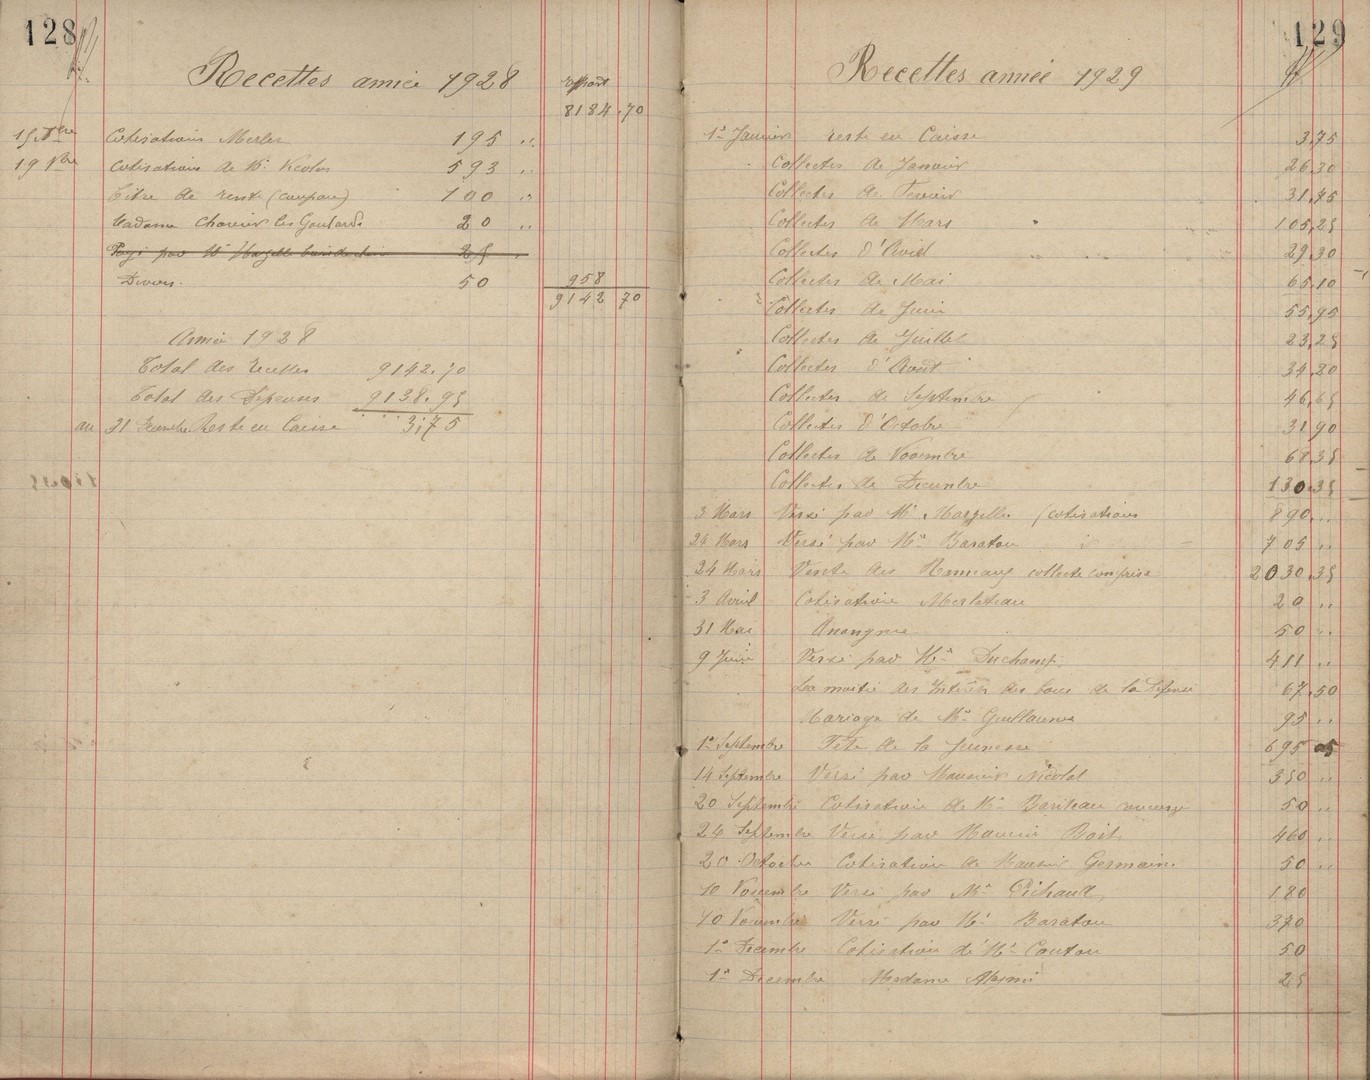 128
Recettes année 1928
report
8184.70
15 Xbre Cotisations Merles 195 "
19 Xbre Cotisations de Mr Nicolas 593 "
Titre de rente (coupon) 100 "
Madame Chauvin les Goulards 20 "
Payé par Mr 25 "
Divers. 50 958
9142 70
Année 1928
Total des recettes 9142.70
Total des Dépenses 9138.95
au 31 Décembre Reste en Caisse 3,75
129
Recettes année 1929
1er Janvier reste en Caisse 3,75
Collectes de Janvier 26.30
Collectes de Février 31,75
Collectes de Mars 105,25
Collectes d'Avril 29.30
Collectes de Mai 65,10
Collectes de Juin 55,95
Collectes de Juillet 23,25
Collectes d'Août 34,20
Collectes de Septembre 46,65
Collectes d'Octobre 31,90
Collectes de Novembre 68.35
Collectes de Décembre 130.35
3 Mars Versé par Mr Mazelle (cotisations 890 "
24 Mars Versé par Mr Baraton 705 "
24 Mars Vente des Rameaux collecte comprise 2030,35
3 Avril Cotisation Merlateau 20 "
31 Mai Anonyme 50 "
9 Juin Versé par Mr Duchamp 411 "
La moitié des Intérêts des bons de la Défense 67,50
Mariage de Mr Guillaume 95 "
1er Septembre Fête de la Jeunesse 695 05
14 Septembre Versé par Monsieur Nicolas 350 "
20 Septembre Cotisation de Mr Bariteau 50 "
24 Septembre Versé par Monsieur Boit 460 "
20 Octobre Cotisation de Monsieur Germain 50 "
10 Novembre Versé par Mr Pichaud 180
10 Novembre Versé par Mr Baraton 370
1er Décembre Cotisation de Mr Couton 50
1er Décembre Madame 25